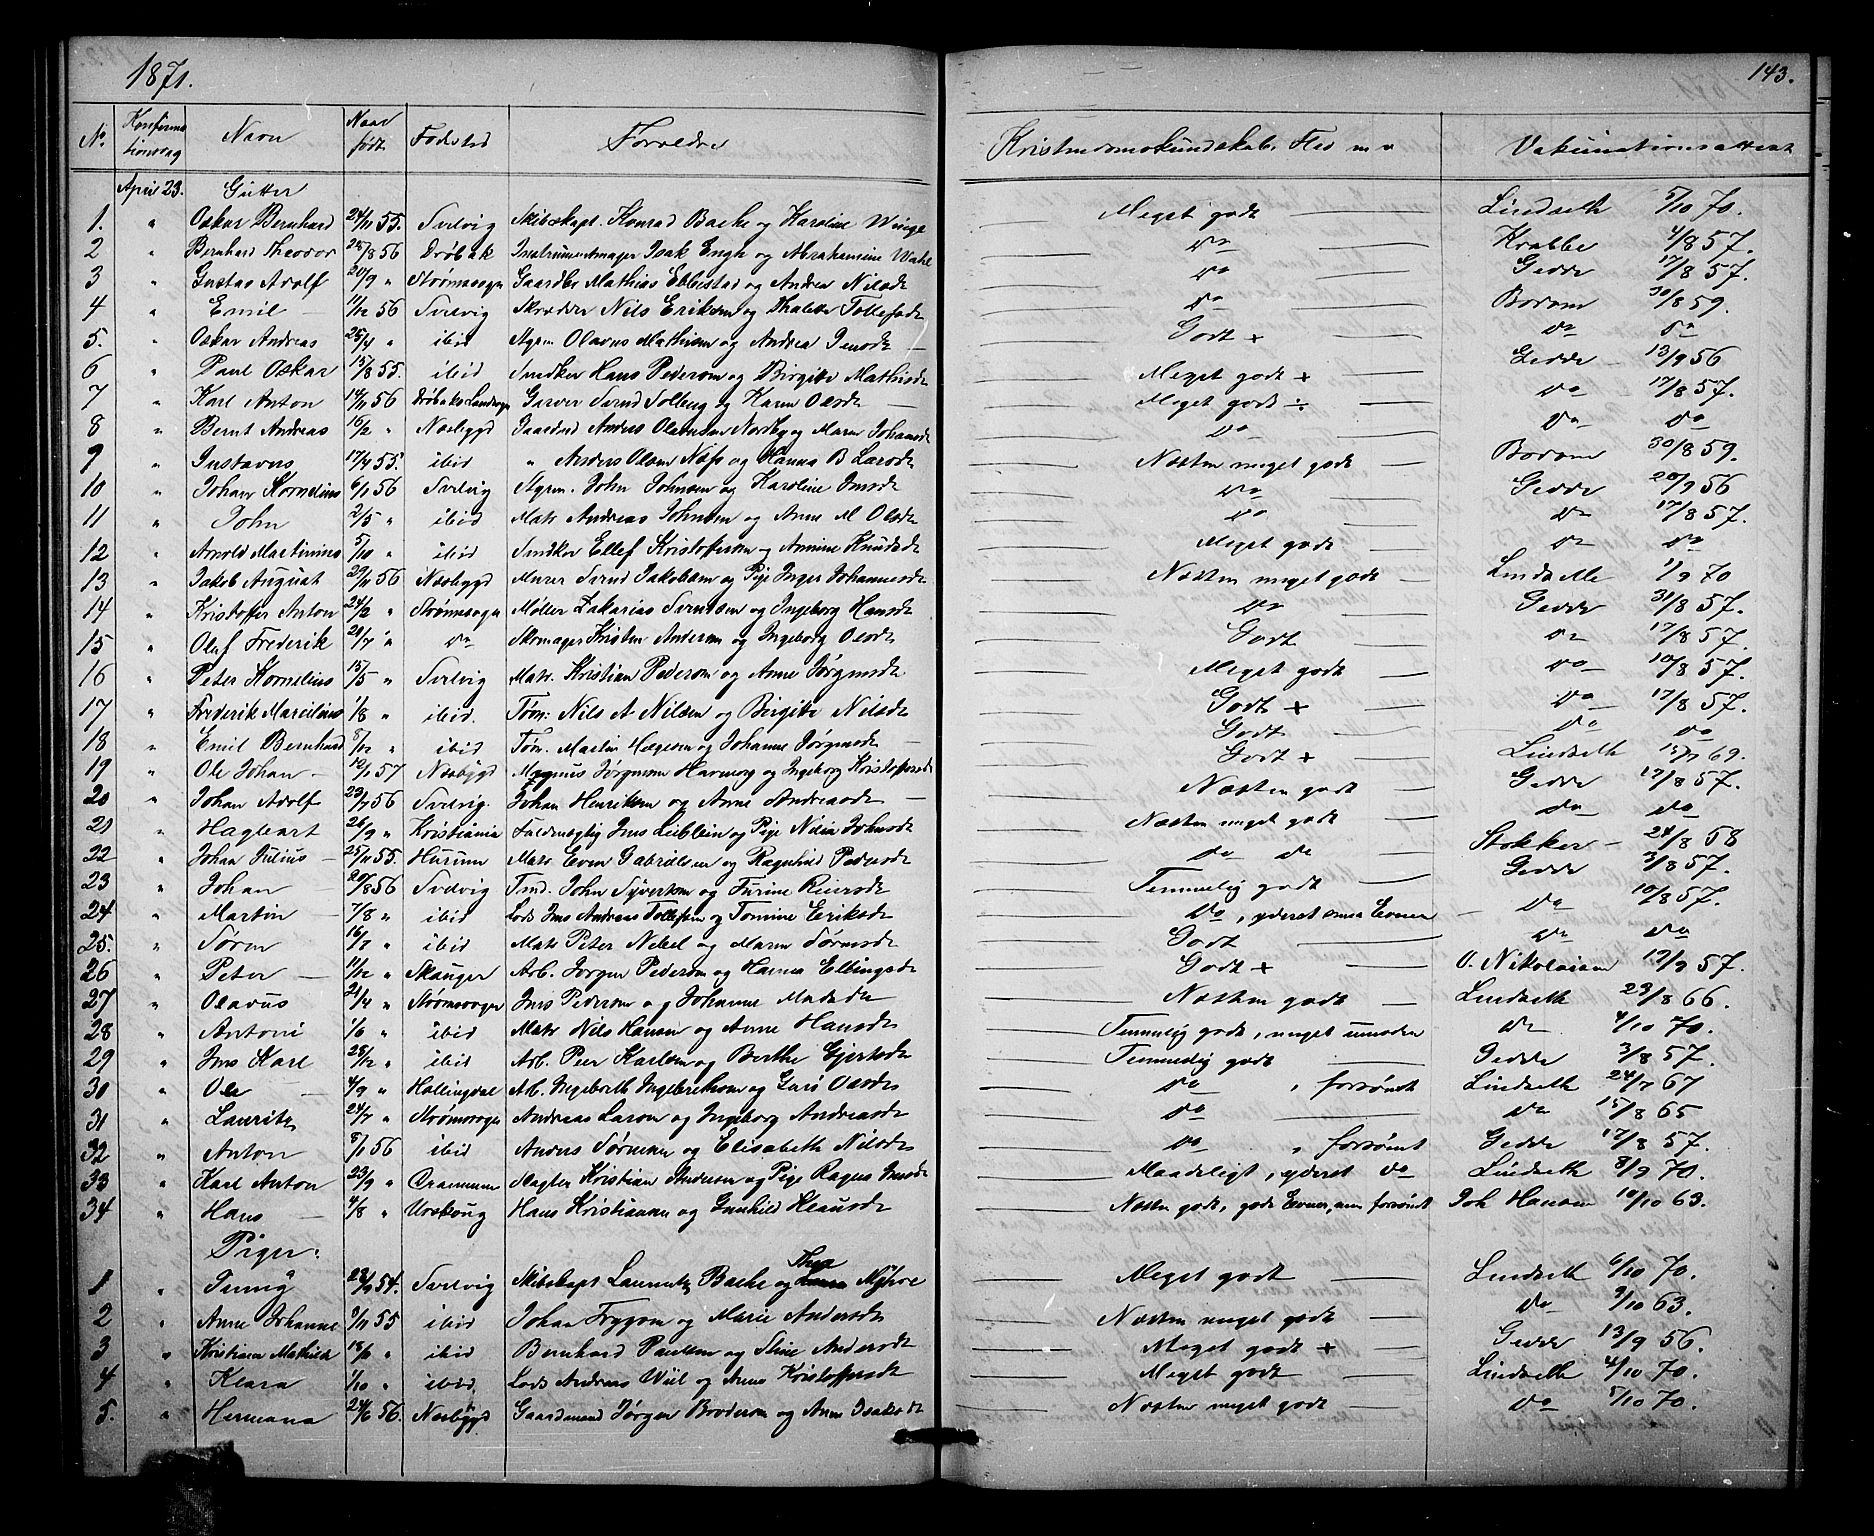 1871.
143.
No. Konfirma tionsdag Navn Naar født Fødested Forældre Kristendomskundskab, Flid m v Vakcinationsattest
April 23. Gutter
1. " Oskar Bernhard 24/11 55. Svelvig Skibskapt. Konrad Bache og Karoline Winge Meget godt Lindseth 5/10 70.
2 " Bernhard Theodor 28/8 56 Drøbak Instrumentmager Isak Engh og Abrahamine Wahl do Krabbe 4/8 57.
3 " Gustav Adolf 20/9 " Strømssogn Gaardbr Mathias Ebbestad og Andrea Nilsdt do Gedde 17/8 57.
4 " Emil 11/12 56 Svelvig Skrædder Nils Eriksen og Thalette Tollefsdt do Bodom 30/8 59.
5. " Oskar Andreas 25/4 " ibid Styrm Olavus Mathisen og Andrea Jensdt Godt + do do
6 " Paul Oskar 15/8 55. ibid Snedker Hans Pedersen og Birgitte Mathisdt Meget godt + Gedde 13/9 56
7 " Karl Anton 14/11 56 Drøbaks Landsogn Garver Svend Solberg og Karen Olsdt Meget godt ÷ do 17/8 57.
8 " Bernt Andreas 16/2 " Nesbygd Gaardmd Anders Olavesen Nordby og Maren Johansdt do do do
9 " Gustavus 17/4 55. ibid " Anders Olsen Næss og Hanna B Larsdt Næsten meget godt Bodom 30/8 59.
10 " Johan Kornelius 6/1 56 Svelvig Styrm. John Johnsen og Karoline Jensdt do Gedde 20/9 56
11 " John 2/5 " ibid Matr Andreas Johnsen og Anne M Olsdt do do 17/8 57.
12 " Arnold Martinius 5/10 " ibid Snedker Ellef Kristoffersen og Annine Knudsdt Meget godt do do
13 " Jakob August 29/11 56 Nesbygd Murer Svend Jakobsen og Pige Inger Johannesdt Næsten meget godt Lindseth 1/9 70
14 " Kristoffer Anton 24/2 " Strømssogn Møller Zakarias Svendsen og Ingeborg Hansdt do Gedde 31/8 57.
15 " Oluf Frederik 20/7 " do Skomager Kristen Andersen og Ingeborg Olsdt Godt do 17/8 57.
16 " Peter Kornelius 15/5 " Svelvig Matr. Kristian Pedersen og Anne Jørgensdt Meget godt do 10/8 57.
17 " Frederik Marcelius 1/8 " ibid. Tøm: Nils A Nilsen og Birgitte Nilsdt Godt + do 17/8 57.
18 " Emil Bernhard 8/12 " ibid Tøm. Martin Hægesen og Johanne Jørgensdt Godt do do
19 " Ole Johan 12/1 57 Nesbygd Magnus Jørgensen Havnorg og Ingeborg Kristoffersdt Godt + Lindseth 15/7 69.
20 " Johan Adolf 23/7 56 Svelvig. Johan Henriksen og Anne Andreasdt Næsten godt Gedde 17/8 57.
21 " Hagbart 26/9 " Kristiania Fuldmægtig Jens Lieblein og Pige Nilia Johnsdt Næsten meget godt do do
22 " Johan Julius 25/11 55. Hurum Matr Even Gabrielsen og Ragnhild Pedersdt do do Stokker 24/8 68
23 " Johan 20/8 56 Svelvig Tmd. John Syvertsen og Turine Reiersdt Temmelig godt Gedde 3/8 57.
24. " Martin 7/8 " ibid Lods Jens Andreas Tollefsen og Tomine Eriksdt do, yderst smaa Evner do 10/8 57.
25. " Søren 16/7 " ibid Matr Peter Nebel og Maren Sørensdt Godt do do
26 " Peter 11/12 " Skauger Arb. Jørgen Pedersen og Hanna Elbingsdt Godt + O. Nikolaisen 12/9 57.
27 " Olavus 21/4 " Strømssogn Jens Pedersen og Johanne Madsdt Næsten godt Lindseth 23/8 66.
28 " Antoni 1/6 " ibid Matr Nils Hansen og Anne Hansdt Temmelig godt, meget umoden do 4/10 70.
29 " Jens Karl 28/12 " ibid Arb. Peer Karlsen og Berthe Gjertsdt Temmelig godt Gedde 3/8 57.
30 " Ole 4/9 " Hallingdal Arb. Ingebreth Ingebrethsen og Guro Olsdt do, forsømt Lindseth 24/7 67
31 " Lauritz 24/7 " Strømssogn Andreas Larsen og Ingeborg Andreasdt do do 15/8 65
32 " Anton 8/1 56 ibid Anders Sørensen og Elisabeth Nilsdt do, forsømt Gedde 17/8 57.
33 " Karl Anton 23/9 " Drammen Magler Kristian Andersen og Pige Ragna Jensdt Maadeligt, yderst do Lindseth 8/9 70.
34 " Hans 4/8 " Urskoug Hans Kristiansen og Gunhild Klausdt Næsten godt, gode Evner, men forsømt Joh Hansen 10/10 63.
Piger:
1 " Jenny 23/10 54. Svelvig Skibskapt Lauritz Bache og Thea Myhre Meget godt Lindseth 6/10 70.
2 " Anne Johanne 3/11 55 ibid Johan Trygsen og Marie Andersdt Næsten meget godt do 9/10 63.
3 " Kristiane Mathilde 18/11 " ibid Bernhard Paulsen og Stine Andersdt Meget godt + Gedde 13/9 56.
4 " Klara 1/10 " ibid. Lods Andreas Wiil og Anne Kristoffersdt Meget godt Lindseth 4/10 70.
5. " Hermana 24/6 56. Nesbygd Gaardmand Jørgen Brodersen og Anne Isaksdt Næsten meget godt do 5/10 70.